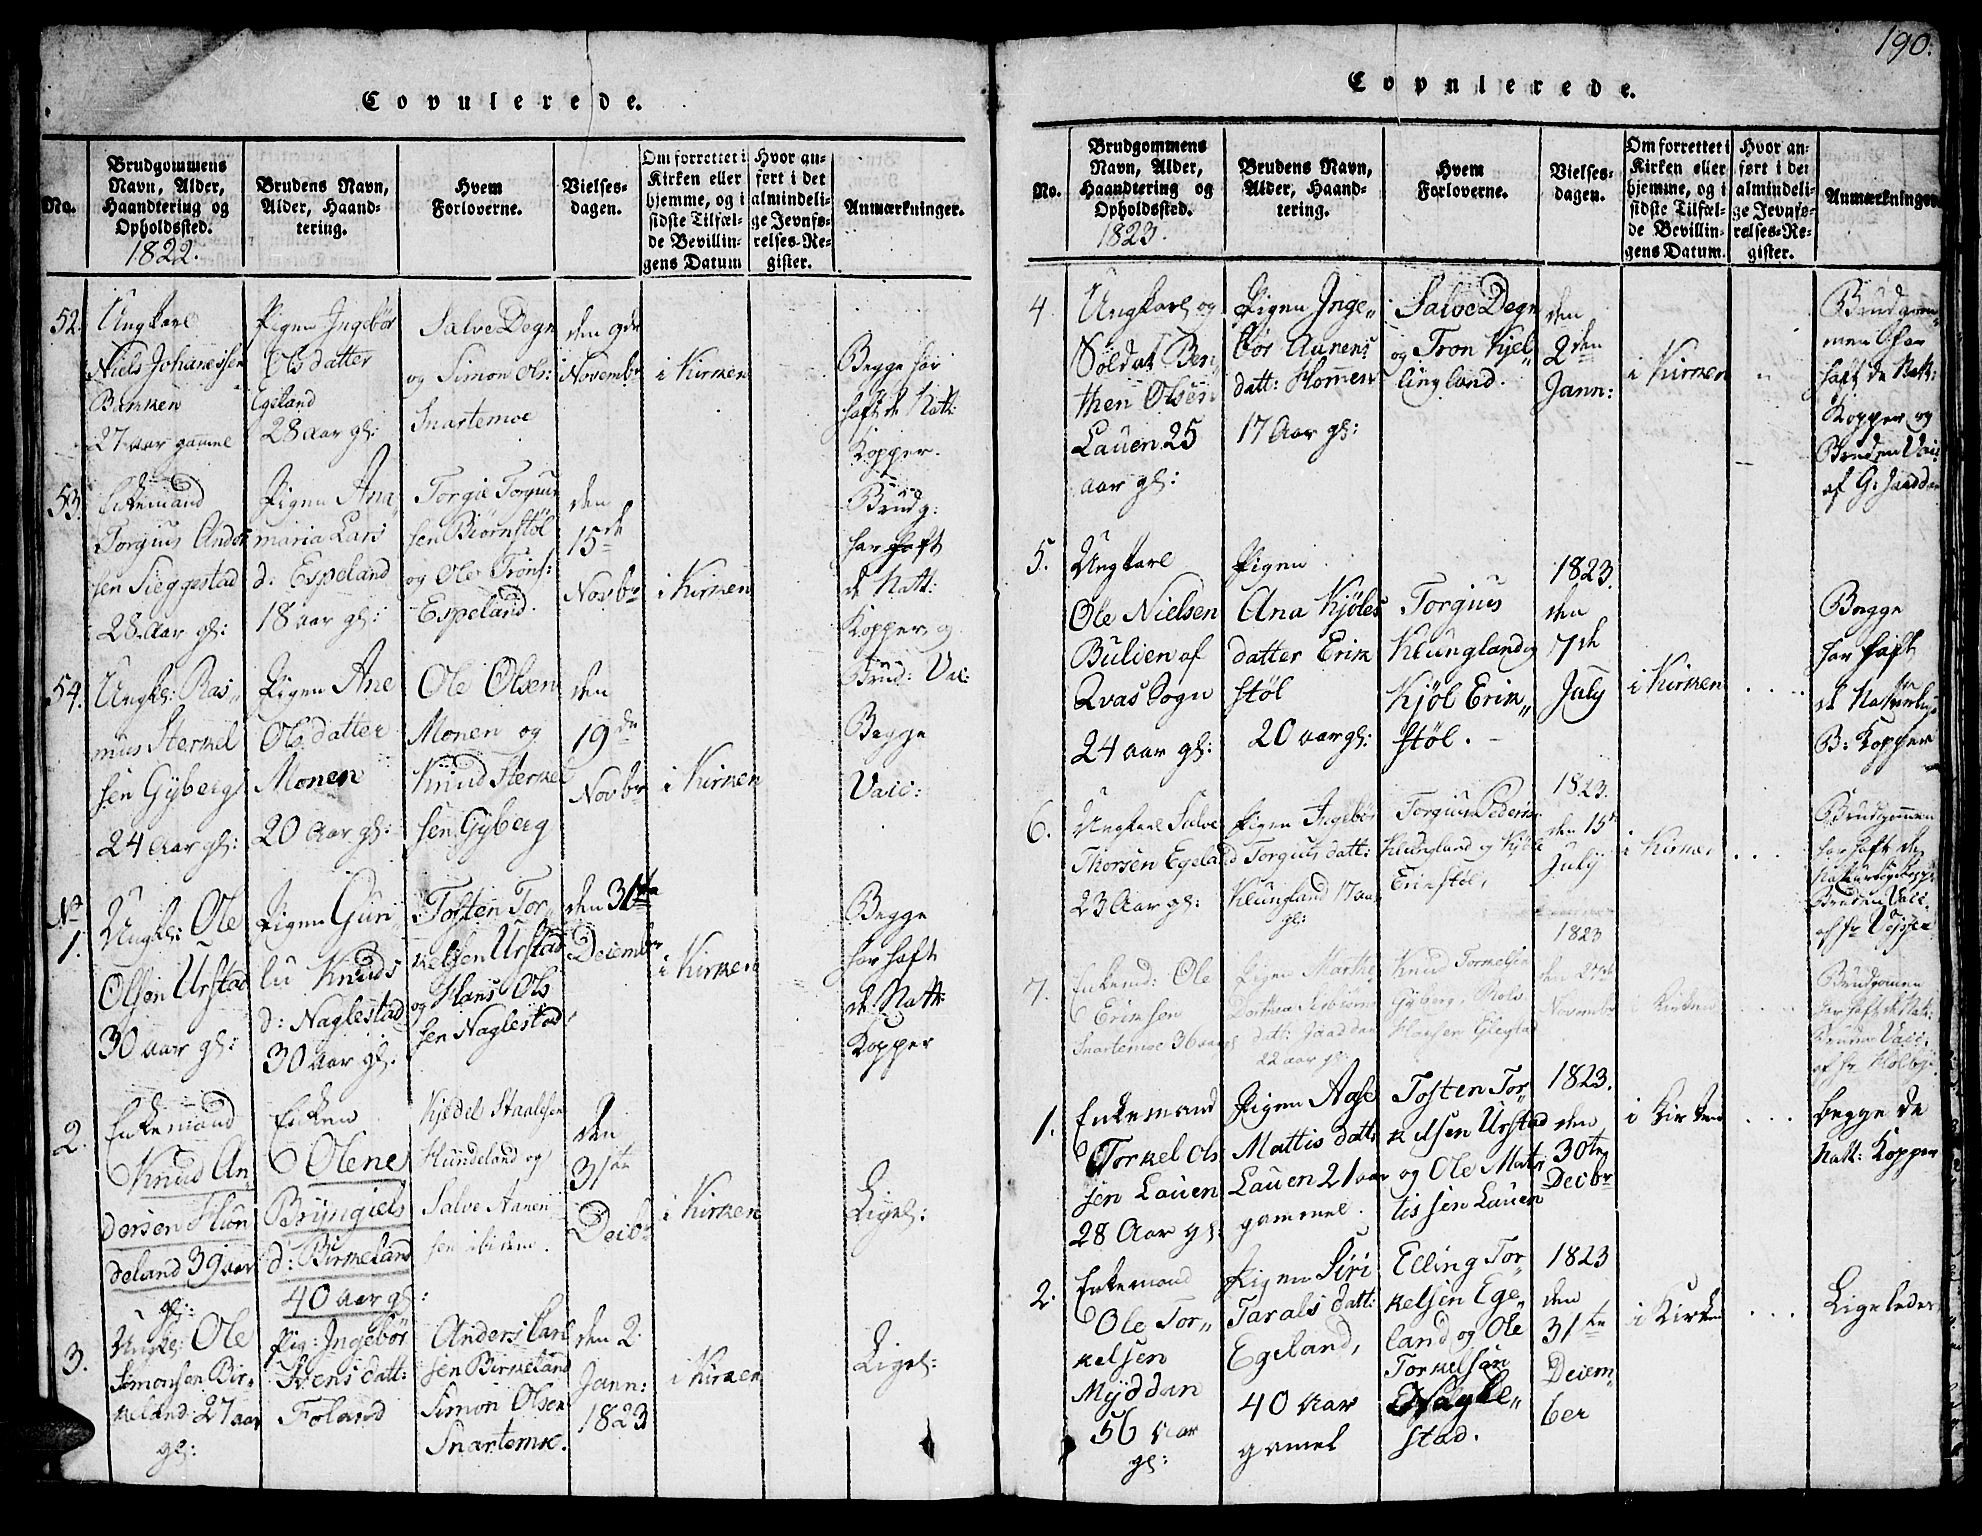 Copulerede.
No.
Brudgommens
Navn, Alder,
Haandtering og
Opholdssted.
1822.
Brudens Navn,
Alder, Haand-
tering.
Hvem
Forloverne.
Vielses-
dagen.
Om forrettet i
Kirken eller
hjemme, og i
sidste Tilfæl-
de Bevillin-
gens Datum
Hvor an-
ført i det
almindeli-
ge Jevnfø-
relses-Re-
gister.
Anmærkninger.
52.
Ungkarl
Niels Johanessen
Bakken
27 aar gammel
Pigen Ingebor
Olsdatter
Egeland
28 aar gl:
Salve Degn
og Simon Ols:
Snartemoe
den 9de
Novembr
i Kirken
Begge har
haft de Natt:
Kopper.
53.
Enkemand
Torgius Anders
sen Sieggestad
28 Aar gl:
Pigen Ana
maria Lars
d: Espeland
18 aar gl:
Torgie Torgius
sen Biørnstøl
og Ole Trons:
Espeland.
den
15de
Novbr
i Kirken
Brudg:
har haft
de Natt:
Kopper, og
Brud: Vac:
54.
Ungkl: Ras„
mus Sterkel
sen Gyberg
24 Aar gl:
Pigen Ane
Olsdatter
Monen
20 Aar gl:
Ole Olsen
Monen og
Knud Sterkel
sen Gyberg
den
19de
Novbr
i Kirken
Begge
Vacc:
No
1.
Ungkl: Ole
Olsen Urstad
30 aar gl:
Pigen Gun„
lu Knuds
d: Naglestad
30 Aar gl.
Tosten Tor„
kelsen Urstad
og Hans Ols
sen Naglestad
den 31te
Decembr
i Kirken
Begge
har haft
de Natt:
Kopper
2.
Enkemand
Knud An„
dersen Hun
deland 39 aar
gl:
Enken
Olene
Bryngiels
d: Birkeland
40 aar gl:
Kjedel Staalesen
Hundeland og
Salve Aanen
sen ibidem.
den
31te
Decbr
i Kirken
Ligel:
3.
Ungkl: Ole
Simonsen Bir„
keland 27 aar
gl:
Pig: Ingebor
Svens datt:
Foland
Anders Carl
sen Birkeland
Simon Olsen
Snartemoe.
den 2.
Jann:
1823
i Kirken
Ligel:
190.
Copulerede.
No.
Brudgommens
Navn, Alder,
Haandtering og
Opholdssted.
1823.
Brudens Navn,
Alder, Haand-
tering.
Hvem
Forloverne.
Vielses-
dagen.
Om forrettet i
Kirken eller
hjemme, og i
sidste Tilfæl-
de Bevillin-
gens Datum.
Hvor an-
ført i det
almindeli-
ge Jevnfø-
relses-Re-
gister.
Anmærkninger
4
Ungkarl og
Soldat Ben
then Olsen
Lauen 25
aar gl:
Pigen Inge„
bor Aanens
datt: Hommen
17 Aar gl:
Salve Degn
og Tron Kjel
lingland.
den
2den
Jann:
i Kirken
Brudgom„
men har
haft de Natt:
Kopper og
Bruden Vac:
af G: Jaaddan
5.
Ungkarl
Ole Nielsen
Bulien af
Qvas Sogn
24 aar gl:
Pigen
Ana Kjøles
datter Erik
støl
20 aar gl:
Torgius
Klungland og
Kjøl Erik„
støl.
1823.
den
7de
July
i Kirken
Begge
har haft
de Naturlige
B: Kopper
6.
Ungkarl Salve
Thorsen Egeland
23 Aar gl:
Pigen Ingebor
Torgius datt:
Klungland 17 aar
gl:
Torgius Peders:
Klungland og Kjøl
Erikstøl.
1823.
den 15de
July
i Kirken
Brudgommen
har haft de
Naturlige Kopp:
Bruden Vacc.
af Hr
7.
Enkemd: Ole
Eriksen
Snartemoe 36 aar gl
Pigen Marthe
datt: Jaaddan
22 aar gl:
Knud Torkelsen
Gyberg,
1823
den 27de
Novembr
i Kirken
Brudgommen
har haft de Nat:
Bruden Vacc.
af Hr
1.
Enkemand
Torkel Ols
sen Lauen
28 Aar gl:
Pigen Aase
Mattis datt:
Lauen 21 aar
gammel.
Tosten Tor„
kelsen Urstad
og Ole Mat„
tissen Lauen
1823.
den
30te
Decbr
i Kirken
begge de
Natt: Kopper
2.
Enkemand
Ole Tor„
kelsen
Myddan
56 Aar
gl:
Pigen Siri
Tarals datt:
Egeland,
40 Aar
gamel
Elling Tor„
kelsen Ege„
land og Ole
Torkelsen
Nagle„
stad.
1823
den
31te
Decem„
ber
i Kirken
Ligeledes